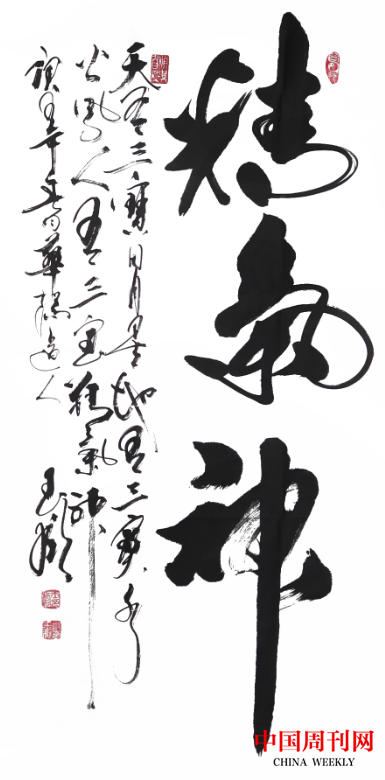 精氣神
天有三寶日月星地有三寶水
火風人有三宝精氣神
年春華道人
王
中国周刊网
CHINA WEEKLY